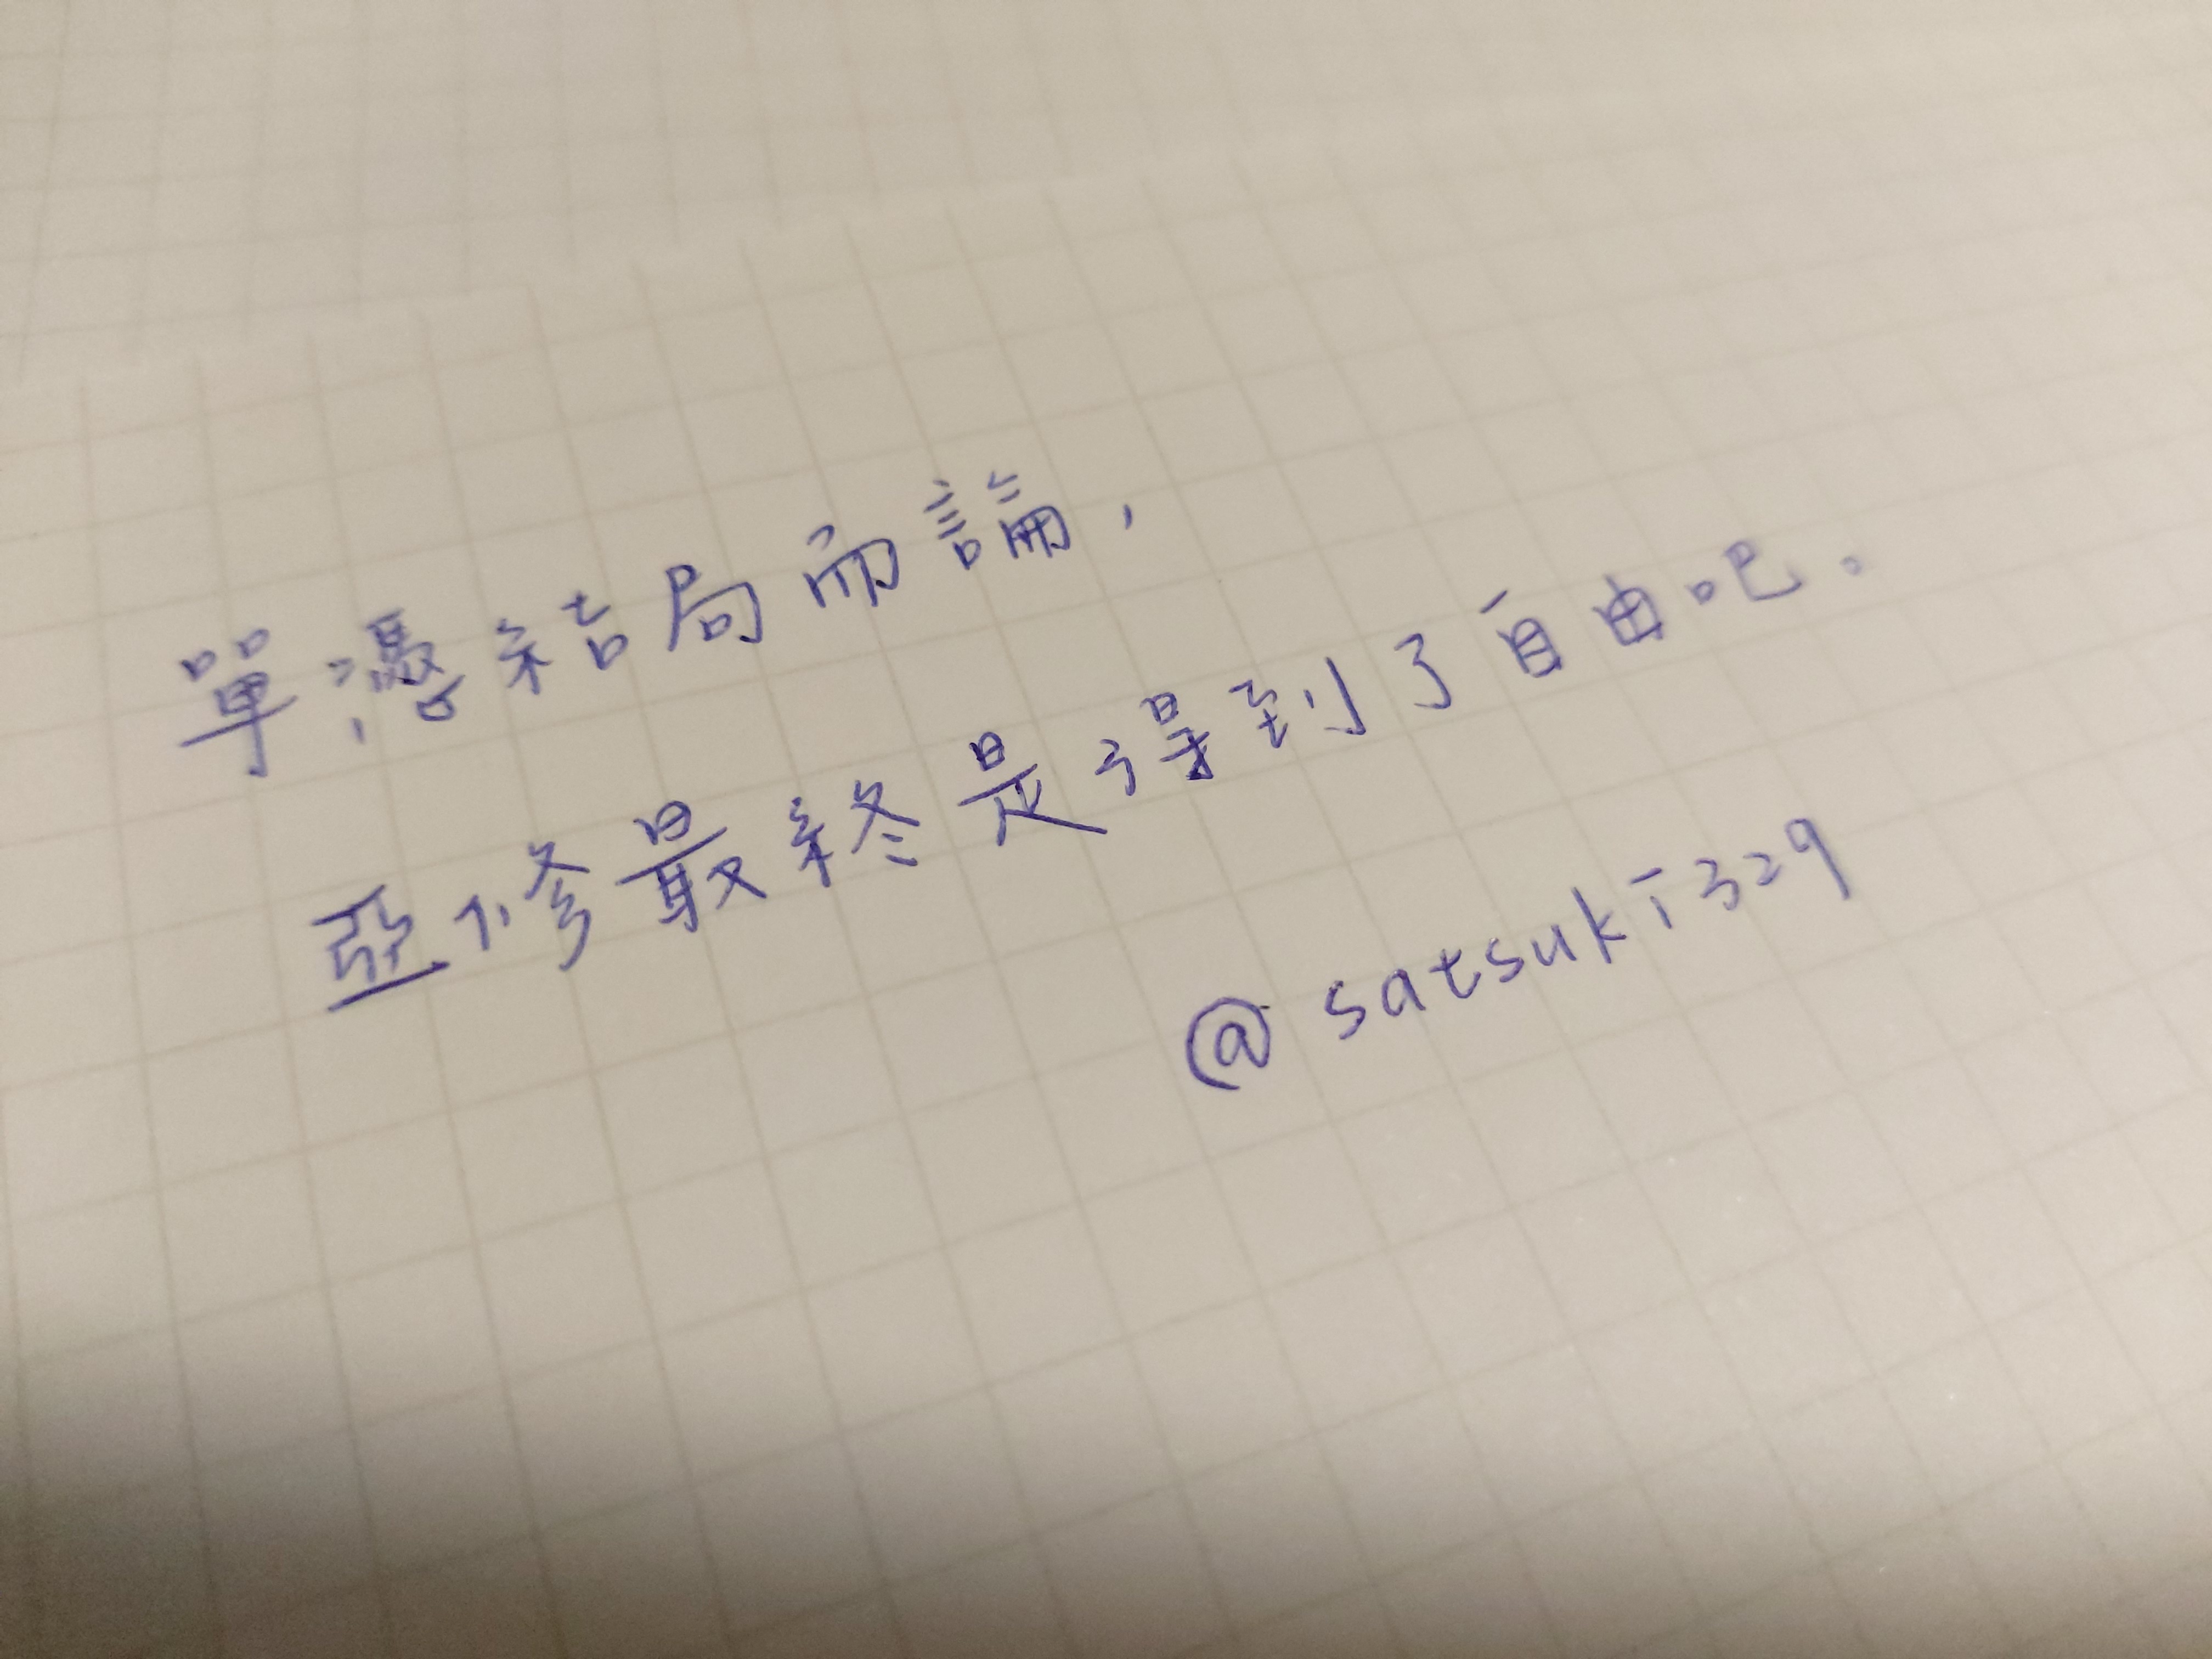 單憑結局而論，
亞修最終是得到了自由吧。
@satsuki329